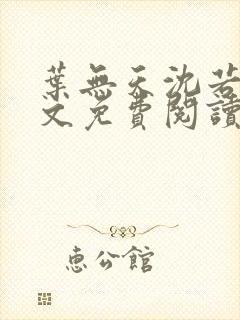 葉無天沈若
文免費閱讀
惠公館